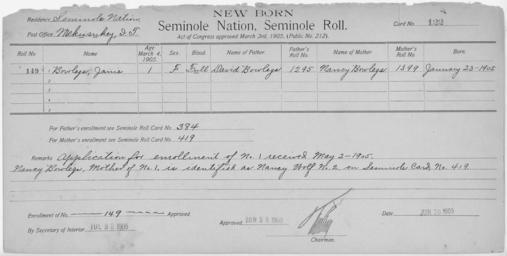 NEW BORN
Residence Seminole Nation.
Seminole Nation, Seminole Roll.
Card No. 122
Post Office Mekusukey, I.T.
Act of Congress approved March 3rd, 1905. (Public No. 212).
Roll No. Name Age March 4, 1905. Sex. Blood. Name of Father Father's Roll No. Name of Mother Mother's Roll No. Born.
149 Bowlegs, Janie 1 F. Full David Bowlegs 1295 Nancy Bowlegs 1399 January 23-1905
For Father's enrollment see Seminole Roll Card No. 384
For Mother's enrollment see Seminole Roll Card No. 419
Remarks Application for enrollment of No. 1 received May 2-1905.
Nancy Bowlegs, Mother of No. 1, is identified as Nancy Wolf No. 2 on Seminole Card, No. 419.
Enrollment of No. 149 Approved
Approved 1905
Date JUN 1905
By Secretary of Interior JUL 22 1905
Chairman.